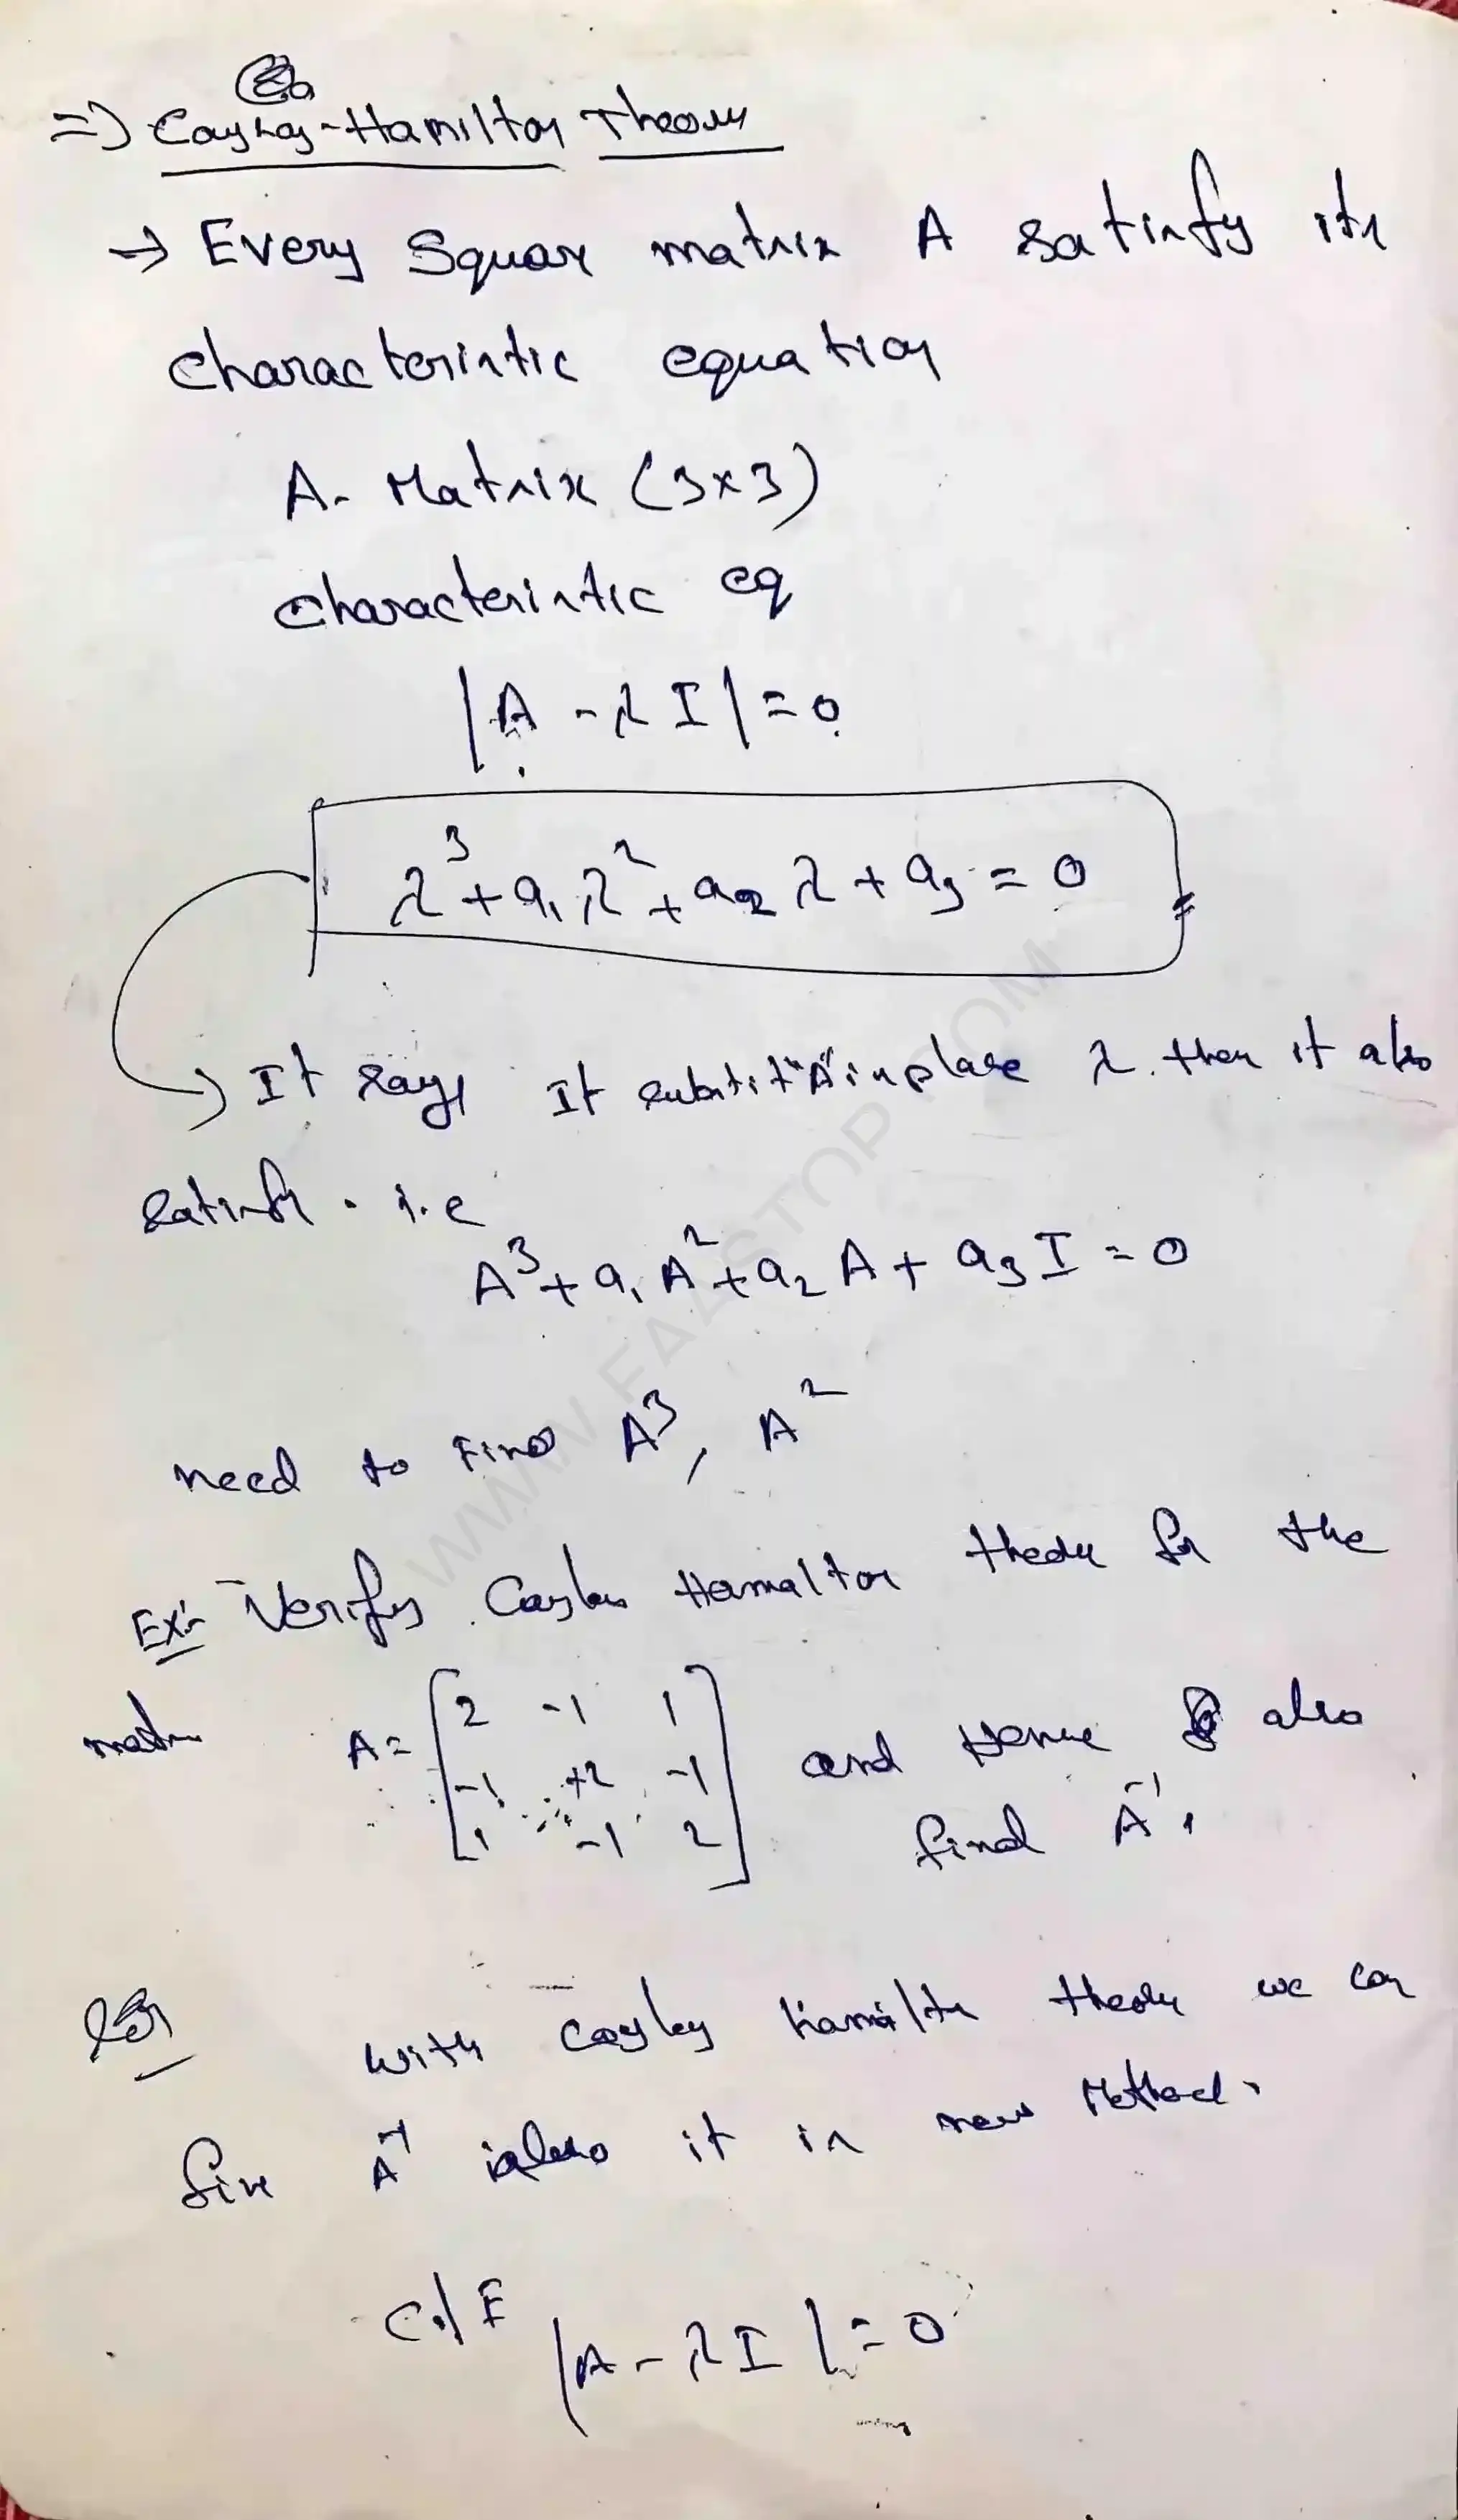 => Cayley-Hamilton Theorem
→ Every Square matrix A satisfy its
characteristic equation
A - Matrix (3×3)
characteristic eq
|A - λI| = 0
λ³ + a₁λ² + a₂λ + a₃ = 0
→ It says It substit "A" in place λ. then it also
satisfy. i.e
A³ + a₁A² + a₂A + a₃I = 0
need to find A³, A²
Ex:- Verify Cayley Hamalton theorem for the
A = [2 -1 1
-1 +2 -1
1 -1 2] and Hence also
find A⁻¹.
Sol with Cayley hamilton theorem we can
A⁻¹ it in new Method.
|A - λI| = 0
WWW.FAASTOP.COM